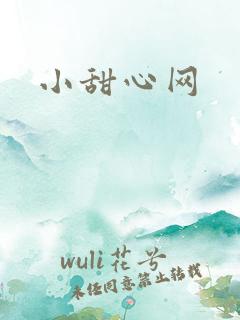 小甜心网
wuli花兮
未经同意禁止转载